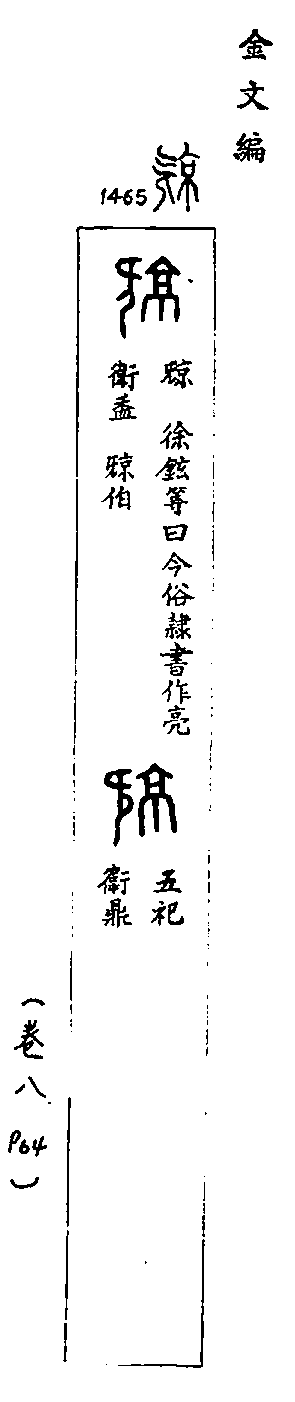 金文編
1465
𣄴 徐鉉等曰今俗隸書作亮
衛盉 𣄴伯
五祀
衛鼎
(卷八 P64)